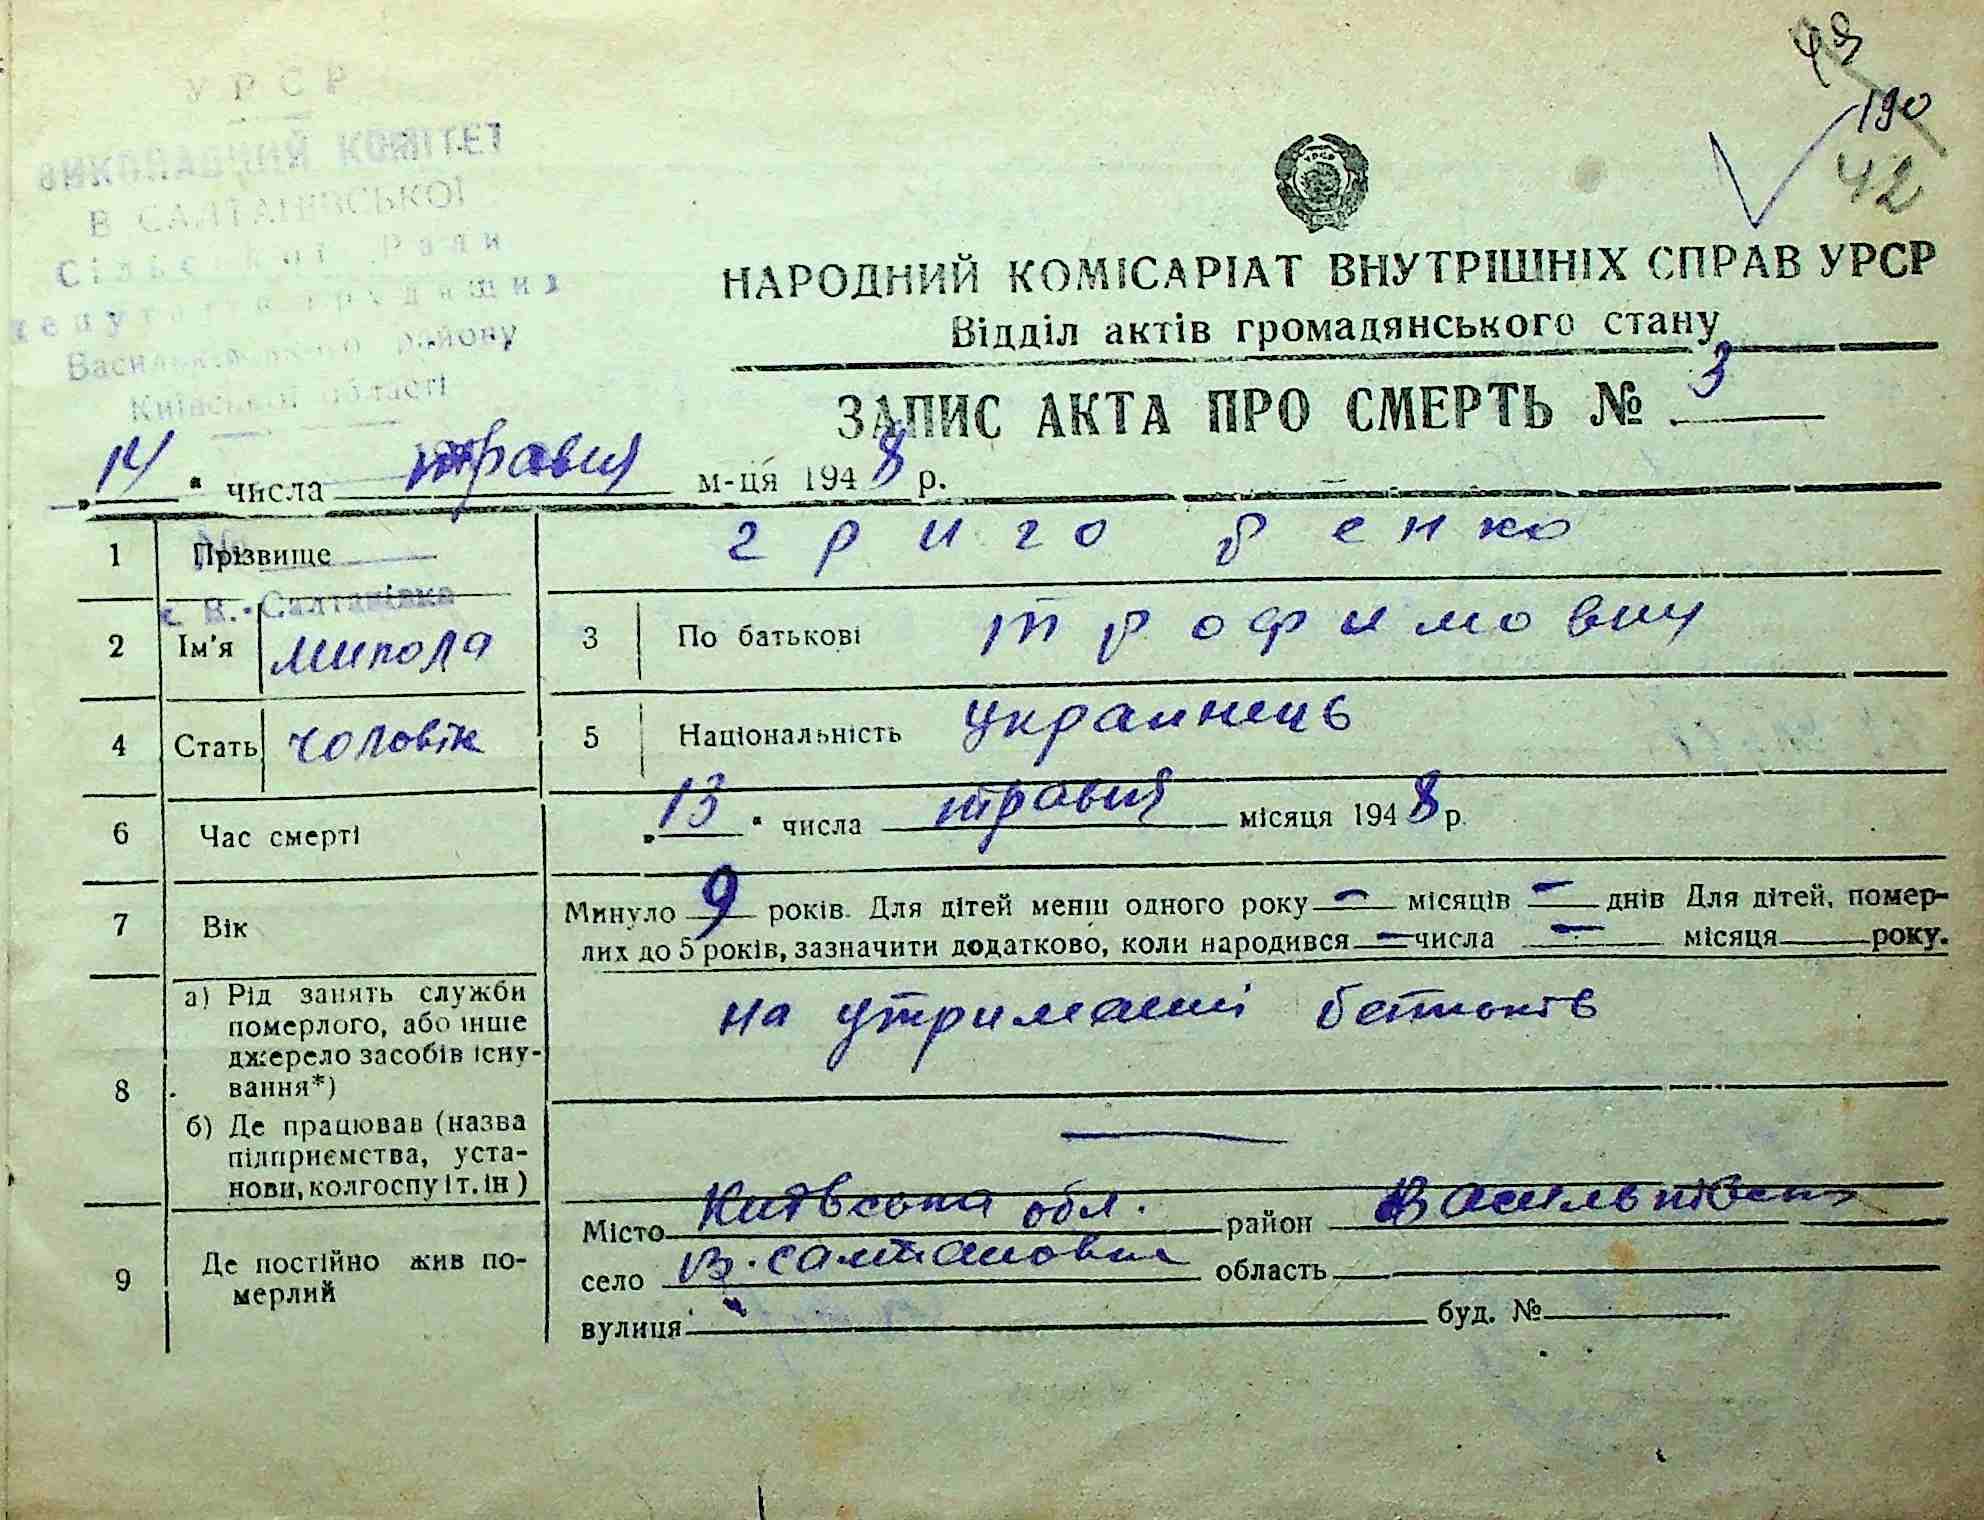 УРСР
ВИКОНАВЧИЙ КОМІТЕТ
В САЛТАНІВСЬКОЇ
Сільської Ради
депутатів трудящих
Васильківського району
Київської області
49
190
42
УРСР
НАРОДНИЙ КОМІСАРІАТ ВНУТРІШНІХ СПРАВ УРСР
Відділ актів громадянського стану
ЗАПИС АКТА ПРО СМЕРТЬ № 3
„14“ числа травня м-ця 1948 р.
№
1 Прізвище григоренко
с В.-Салтанівка
2 Ім'я микола 3 По батькові трофимович
4 Стать чоловік 5 Національність украинець
6 Час смерті „13“ числа травня місяця 1948 р.
7 Вік Минуло 9 років. Для дітей менш одного року — місяців — днів Для дітей, помер-
лих до 5 років, зазначити додатково, коли народився — числа — місяця року.
8 а) Рід занять служби
померлого, або інше
джерело засобів існу-
вання*)
на утриманні батьків
б) Де працював (назва
підприємства, уста-
нови, колгоспу і т. ін)
—
9 Де постійно жив по-
мерлий
Місто Київська обл. район Васильківськ
село В. Салтановка область
вулиця буд. №